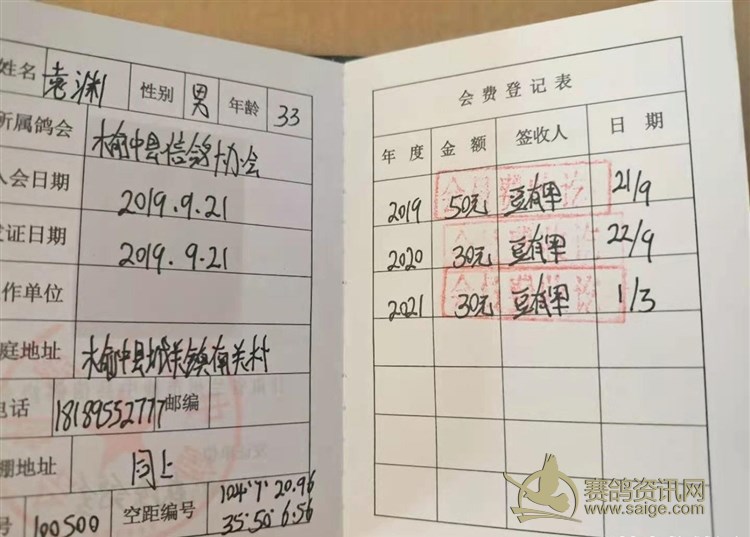 姓名 袁渊 性别 男 年龄 33
所属鸽会 榆中县信鸽协会
入会日期 2019.9.21
发证日期 2019.9.21
作单位
庭地址 榆中县城关镇南关村
电话 18189552777 邮编
棚地址 同上
号 100500 空距编号 104°7'20.96
35°50'6.56
会费登记表
年度 金额 签收人 日期
2019 50元 豆有军 21/9
2020 30元 豆有军 22/9
2021 30元 豆有军 1/3
赛鸽资讯网
www.saige.com